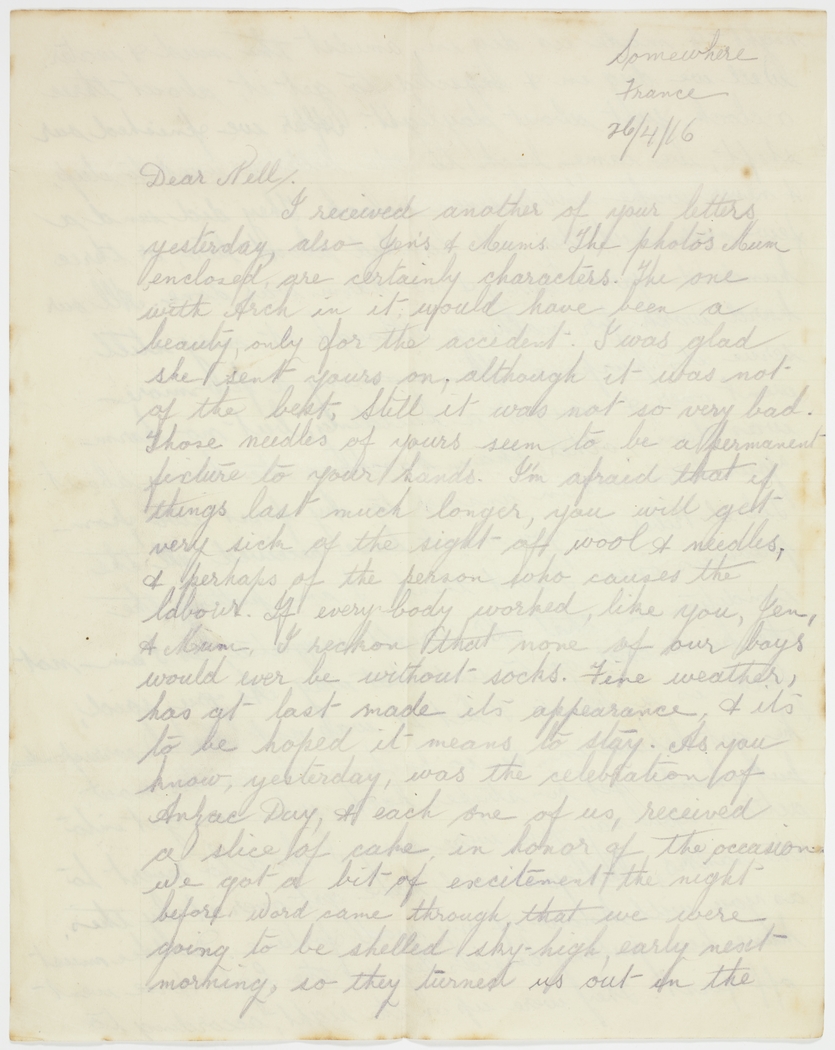 Somewhere
France
26/4/16
Dear Nell.
I received another of your letters
yesterday, also Jen's & Mums. The photo's Mum
enclosed, are certainly characters. The one
with Arch in it, would have been a
beauty, only for the accident. I was glad
she sent yours on, although it was not
of the best. Still it was not so very bad.
Those needles of yours seem to be a permanent
ficture to your hands. I'm afraid that if
things last much longer, you will get
very sick of the sight of wool & needles,
& perhaps of the person who causes the
labour. If every body worked, like you, Jen,
& Mum, I reckon that none of our boys
would ever be without socks. Fine weather,
has at last made its appearance, & its
to be hoped it means to stay. As you
know, yesterday, was the celebration of
Anzac Day, & each one of us, received
a slice of cake, in honor of the occasion.
We got a bit of excitement the night
before. Word came through, that we were
going to be shelled sky-high, early next
morning, so they turned us out in the